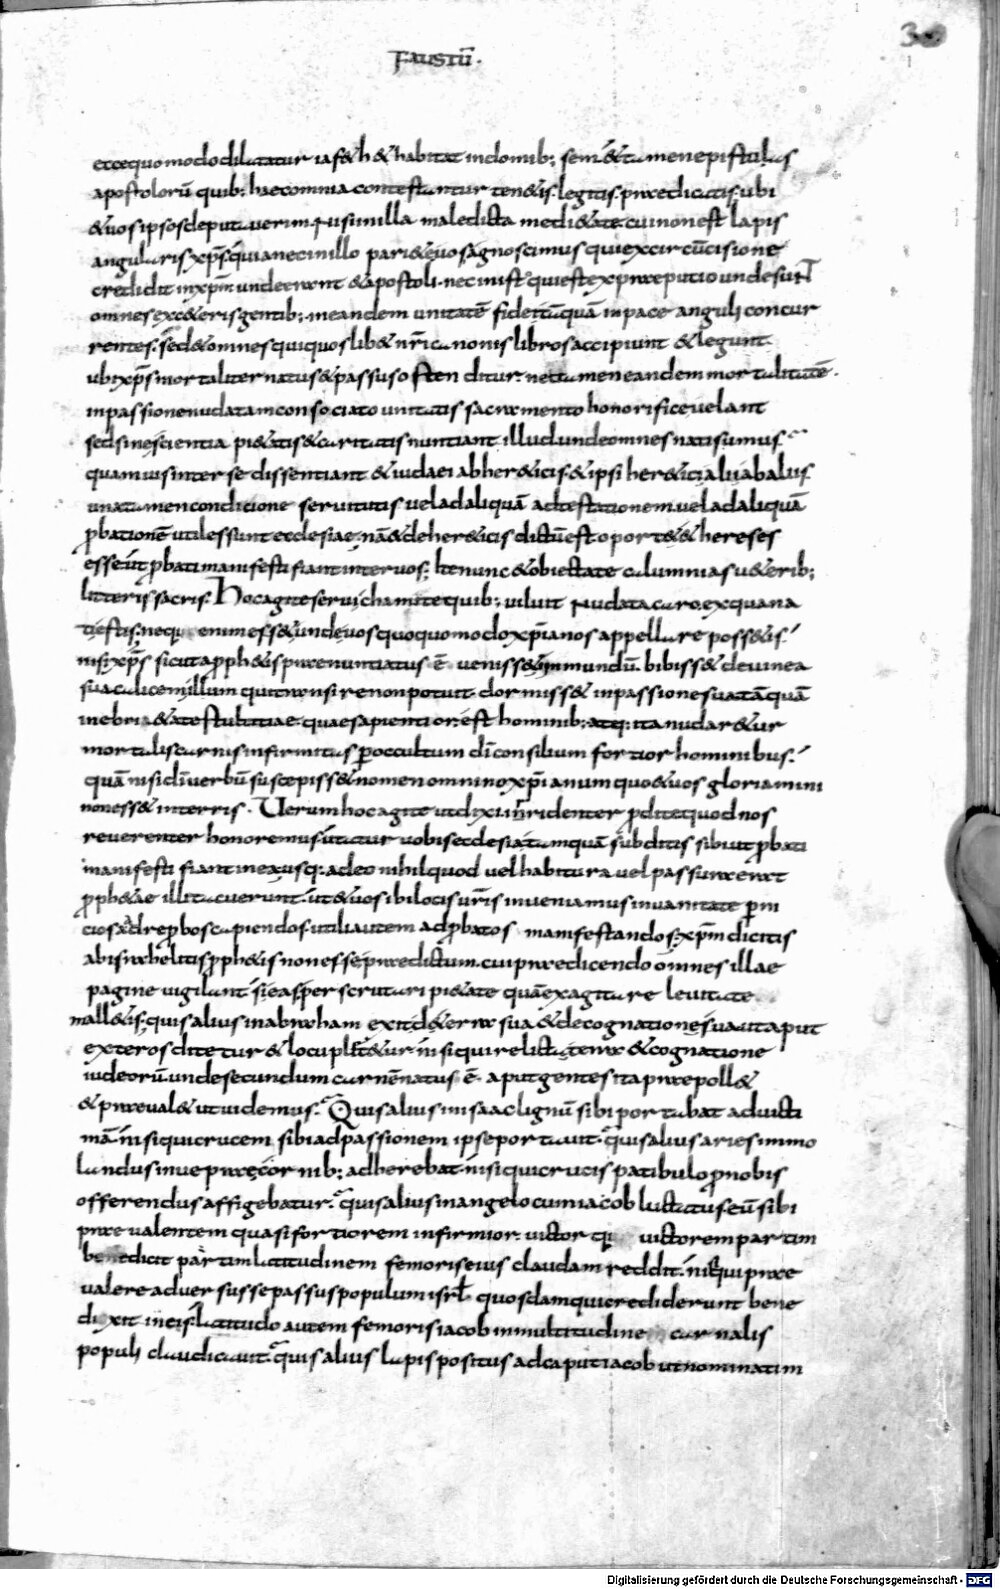 Faustū.
30
ecce quomodo dilatatur iafeth & habitat in domib; sem. & tamen epistulas
apostolorū quib; haec omnia contestantur tenetis. legitis. praedicatis. ubi
& uos ipsos deputauerim. f
angularis xp̄s quia nec in illo pari& e uos agnoscimus qui ex circūcisione
credidit in xp̄m unde erant & apostoli. nec in isto qui est ex praeputio unde sunt
omnes exc&eris gentib; in eandem unitatē fidei tāquā in pace anguli concur
rentes. sed & omnes qui quoslib& n̄r̄i canonis libros accipiunt & legunt.
ubi xp̄s mortaliter natus & passus ostenditur. nec tamen eandem mortalitatē.
in passione nudatam consociato unitatis sacramento honorifice uelant
sed sine scientia pi&atis & caritatis nuntiant illud unde omnes nati sumus.
quamuis inter se dissentiant & iudaei ab her&icis. & ipsi her&ici alii ab aliis.
una tamen condicione seruitutis uel ad aliquā adtestationem uel ad aliquā
probationē utiles sunt ecclesiae. nā & de her&icis dictū est oport& & hereses
esse ut probati manifesti fiant inter uos; Ite nunc & obiectate calumnias u&erib;
litteris sacris. Hoc agite serui cham ite quib; uiluit nudata caro. ex qua na
ti estis. neq; enim ess& unde uos quoquomodo xp̄ianos appellare poss&is.
nisi xp̄s sicut a proph&is praenuntiatus ē. uenisset in mundū. bibiss& de uinea
sua calicem illum qui transire non potuit. dormiss& in passione sua tāquā
in ebri&ate stultitiae. quae sapientior est hominib; atq; ita nudar&ur
mortalis carnis infirmitas per occultum dī consilium fortior hominibus.
quā nisi dī uerbū suscepiss& nomen omnino xp̄ianum quo & uos gloriamini
non ess& in terris. Uerum hoc agite ut dixi. inridenter prodite quod nos
reuerenter honoremus. utatur uobis ecclesia tamquā subditis sibi ut probati
manifesti fiant in ea. usq; adeo nihil quod uel habitura uel passura erat
proph&ae illi tacuerunt. ut & uos ibi locis ur̄is inueniamus in uanitate perni
ciosa ad reprobos capiendos. utili autem ad probatos manifestandos. xp̄m dicitis
ab israhelitis proph&is non esse praedictum. cui praedicendo omnes illae
pagine uigilant. si eas perscrutari pi&ate quā exagitare leuitate
mall&is. quis alius in abraham exit de terra sua & de cognatione sua ut aput
exteros dit&ur & locupl&&ur. nisi qui relicta terra & cognatione
iudeorū unde secundum carnē natus ē. aput gentes ita praepoll&
& praeual& ut uidemus. Quis alius in isaac lignū sibi portabat ad uicti
mā. nisi qui crucem sibi ad passionem ipse portauit. quis alius aries immo
landus in uepre cornib; adherebat. nisi qui crucis patibulo pro nobis
offerendus affigebatur. quis alius in angelo cum iacob luctatus. eū sibi
praeualentem quasi fortiorem infirmior. uictor qui uictorem partim
benedicit partim latitudinem femoris eius claudam reddit. nisi qui prae
ualere aduersus se passus populum isrl̄ quosdam qui crediderunt bene
dixit in eis. latitudo autem femoris iacob in multitudine carnalis
populi claudicauit. quis alius lapis positus ad caput iacob ut nominatim